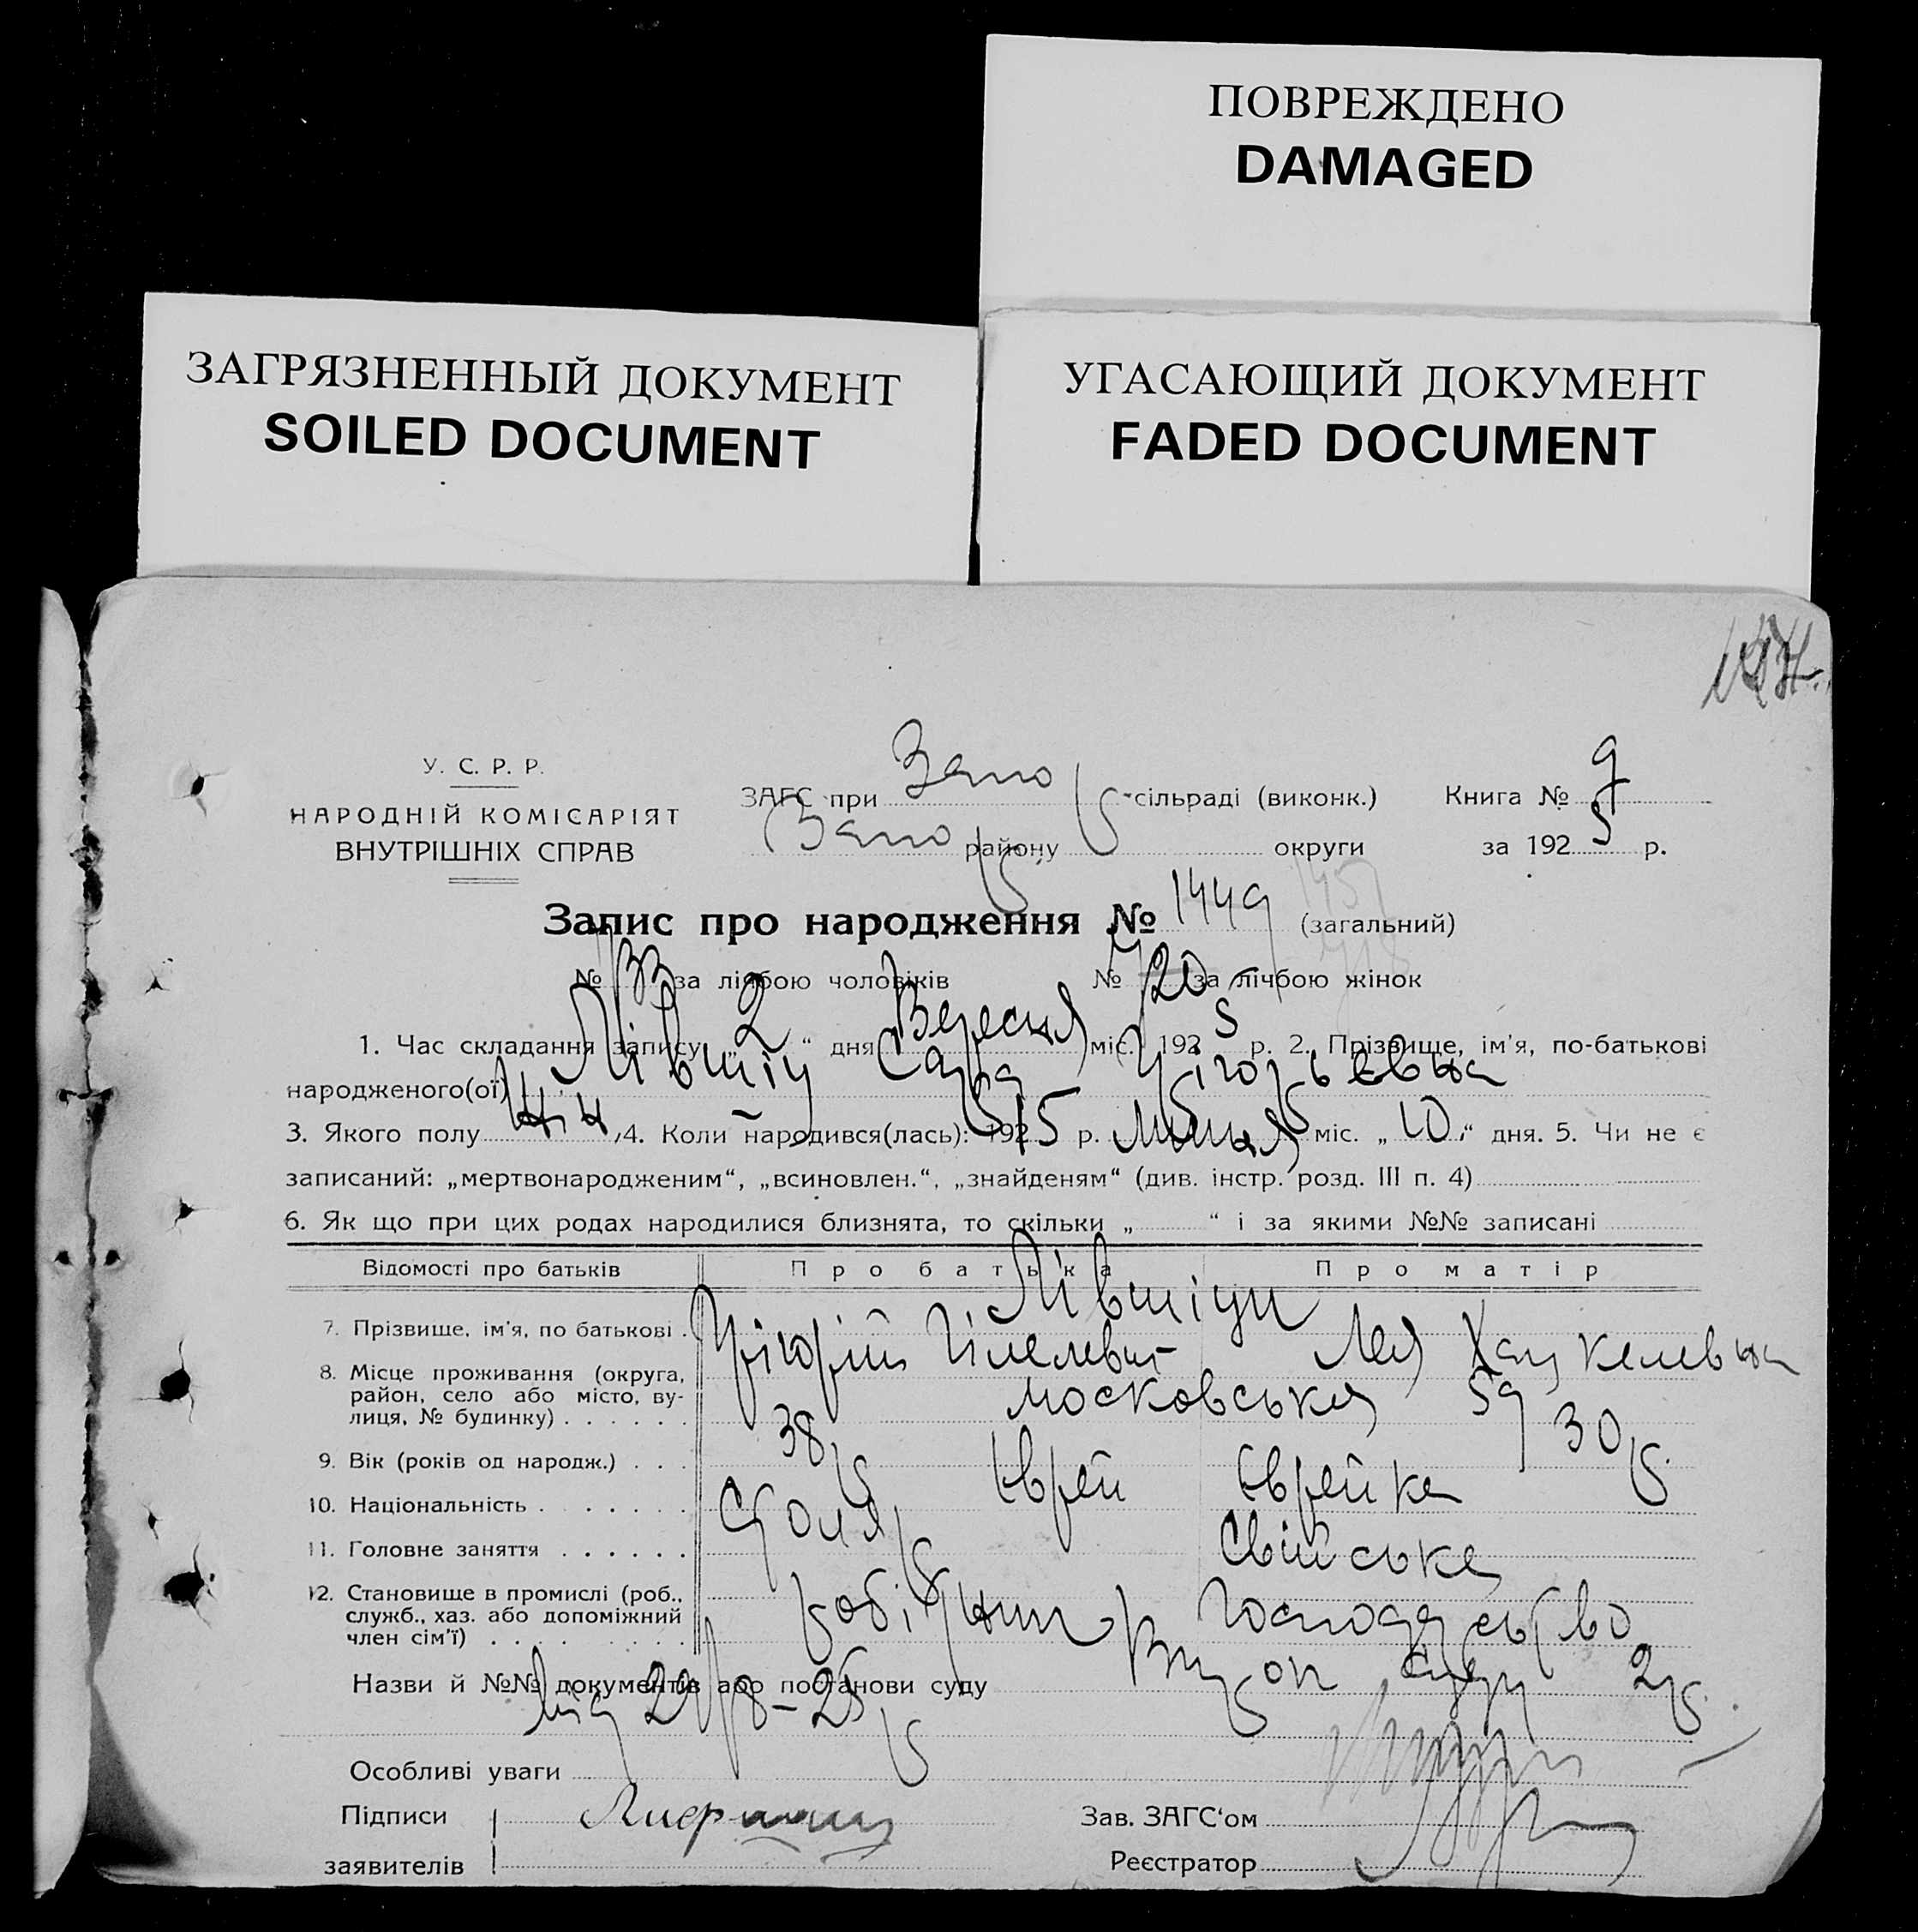 ПОВРЕЖДЕНО
DAMAGED
ЗАГРЯЗНЕННЫЙ ДОКУМЕНТ
SOILED DOCUMENT
УГАСАЮЩИЙ ДОКУМЕНТ
FADED DOCUMENT
У. С. Р. Р.
НАРОДНІЙ КОМІСАРІЯТ
ВНУТРІШНІХ СПРАВ
ЗАГС при Запо сільраді (виконк.) Книга № 9
Запо району округи за 1925 р.
Запис про народження № 1449 (загальний)
№ 733 за лічбою чоловіків № 720 за лічбою жінок
1. Час складання запису „2“ дня Вересня міс. 1925 р. 2. Прізвище, ім'я, по-батькові
народженого(ої) Лівшіц Сара Грігорьевна
3. Якого полу жін 4. Коли народився(лась): 1925 р. Липня міс. „10“ дня. 5. Чи не є
записаний: „мертвонародженим“, „всиновлен.“, „знайденям“ (див. інстр. розд. III п. 4)
6. Як що при цих родах народилися близнята, то скільки „ “ і за якими №№ записані
Відомості про батьків Про батька Про матір
Лівшіци
7. Прізвище, ім'я, по батькові . Грігорій Лея Хацкелевна
8. Місце проживання (округа, район, село або місто, вулиця, № будинку) . . . . . . Московська 59
9. Вік (років од народж.) . . . 38 р 30 р.
10. Національність . . . . . . . Єврей Єврейка
11. Головне заняття . . . . . . Столяр Свійське
12. Становище в промислі (роб., служб., хаз. або допоміжний член сім'ї) . . . . робітник господарство
Назви й №№ документів або постанови суду суду 2 р.
від 29/8–25 р
Особливі уваги
Підписи Зав. ЗАГС'ом
заявителів Реєстратор